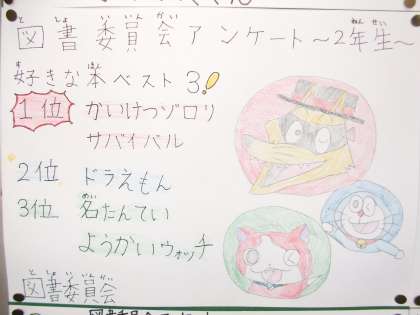 図書委員会アンケート〜2年生〜
好きな本ベスト3!
1位 かいけつゾロリ
サバイバル
2位 ドラえもん
3位 名たんてい
ようかいウォッチ
図書委員会